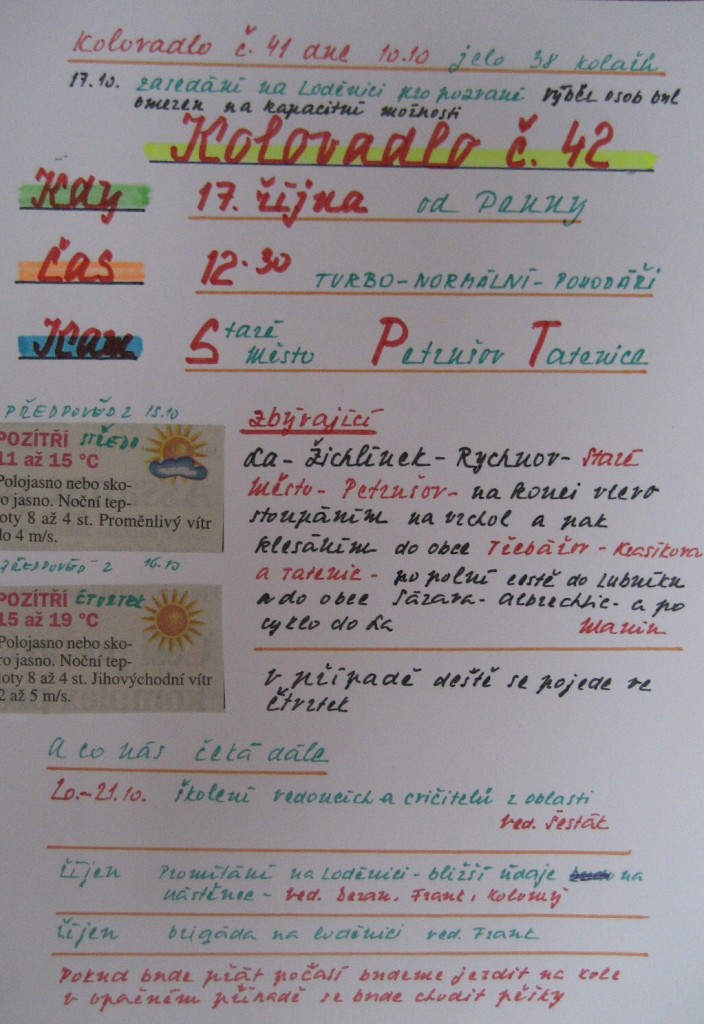 Kolovadlo č. 41 dne 10.10 jelo 38 kolařů
17.10. zasedání na Loděnici pro pozvané výběr osob byl
omezen na kapacitní možnosti
Kolovadlo č. 42
Kdy 17. října od Penny
Čas 12.30 TURBO-NORMÁLNÍ-POHODÁŘI
Kam Staré Město Petrušov Tatenice
PŘEDPOVĚĎ Z 15.10
POZÍTŘÍ STŘEDA
11 až 15 °C
Polojasno nebo sko-
ro jasno. Noční tep-
loty 8 až 4 st. Proměnlivý vítr
do 4 m/s.
PŘEDPOVĚĎ Z 16.10
POZÍTŘÍ ČTVRTEK
15 až 19 °C
Polojasno nebo sko-
ro jasno. Noční tep-
loty 8 až 4 st. Jihovýchodní vítr
2 až 5 m/s.
Zbývající
La- Žichlínek- Rychnov- Staré
Město- Petrušov- na konci vlevo
stoupáním na vrchol a pak
klesáním do obce Třebařov- Krasíkova
a Tatenic- po polní cestě do Lubníku
a do obce Sázava- Albrechtic- a po
cyklo do La
v případě deště se pojede ve
čtvrtek
A co nás čeká dále
20.-21.10. školení vedoucích a cvičitelů z oblasti
ved. Šesták
říjen Promítání na Loděnici- bližší údaje na
nástěnce- ved. Beran, Frant, Kolomý
říjen brigáda na loděnici ved. Frant
Pokud bude přát počasí budeme jezdit na kole
v opačném případě se bude chodit pěšky